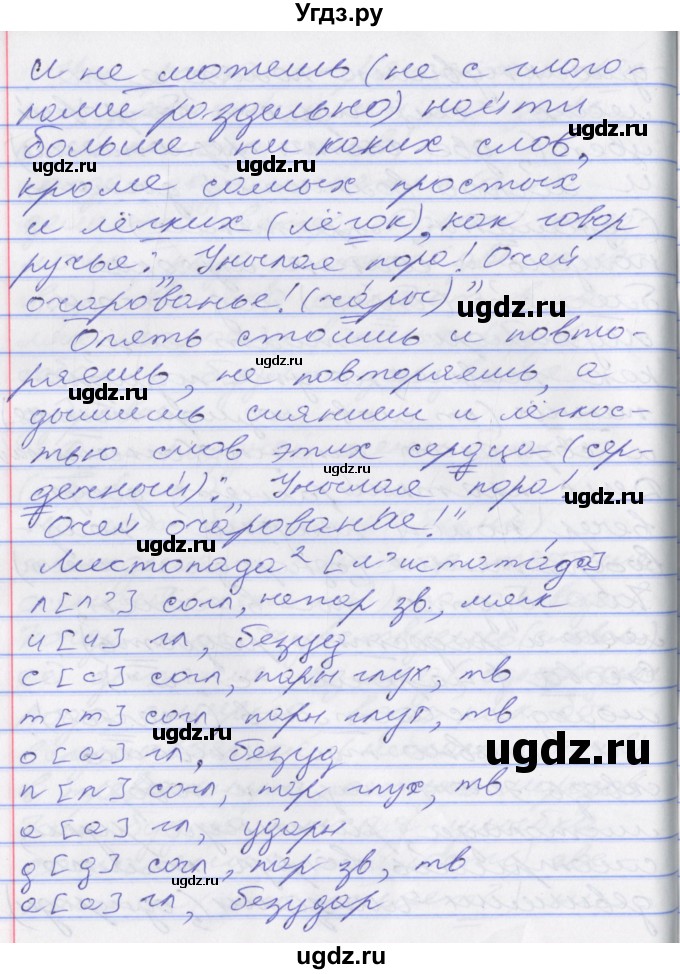 Угдз.ру
и не можешь (не с глаго-
лами раздельно) найти
больше ни каких слов,
кроме самых простых
и лёгких (лёгок), как говор
ручья: „Унылая пора! Очей
очарованье! (чары)”
Опять стоишь и повто-
ряешь, не повторяешь, а
дышишь сиянием и лёгкос-
тью слов этих сердца (сер-
дечный): „Унылая пора!
Очей очарованье!”
Листопада² [л'истапа́да]
л [л'] согл, непар зв., мягк
и [и] гл, безуд
с [с] согл, парн глух, тв
т [т] согл, парн глух, тв
о [а] гл, безуд
п [п] согл, пар глух, тв
а [а] гл, ударн
д [д] согл, пар зв, тв
а [а] гл, безудар
ugdz.ru
ugdz.ru
ugdz.ru
ugdz.ru
ugdz.ru
ugdz.ru
ugdz.ru
ugdz.ru
ugdz.ru
ugdz.ru
ugdz.ru
ugdz.ru
ugdz.ru
ugdz.ru